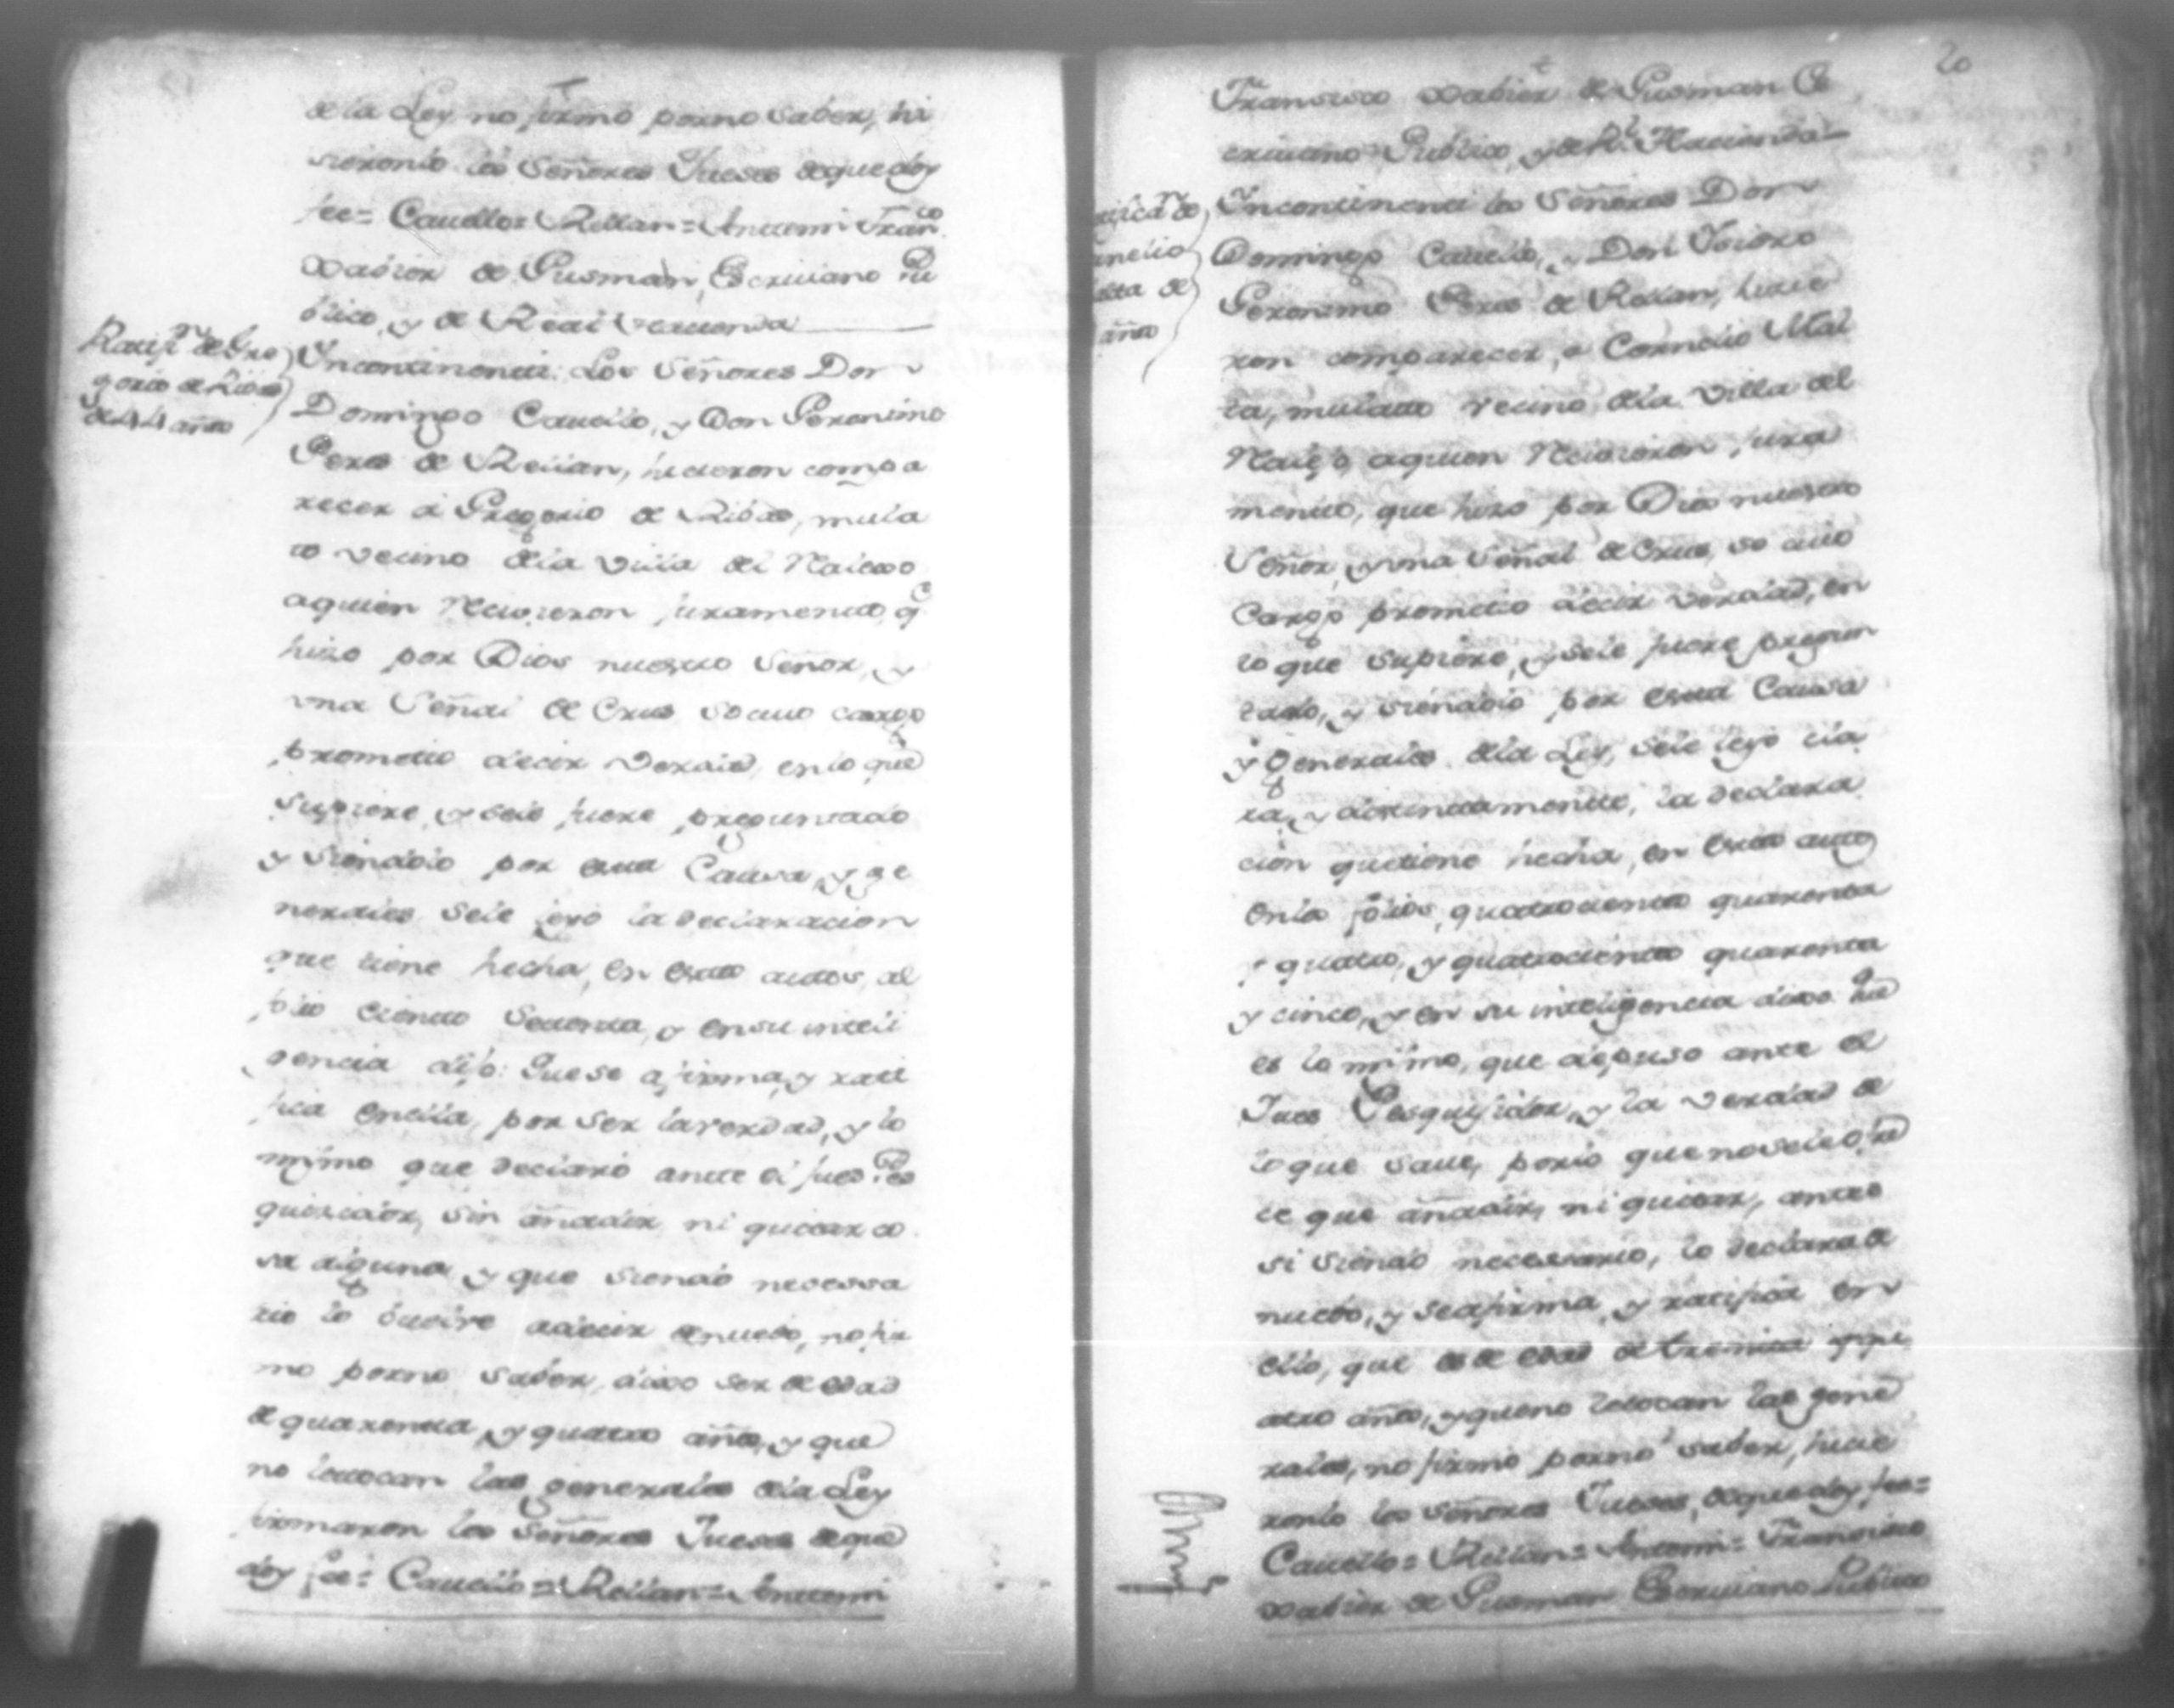 de la Ley no firmo por no saber, hi
sieronlo los Señores Jueses de que doy
fee = Cauello = Rellan = Antemi Fran.co
Xabier de Gusman, Escriuano Pu
blico, y de Real Hacienda
Ratif.n de Gre
gorio de Ribas
de 44 años
Incontinenti: Los Señores Don
Domingo Cauello, y Don Geronimo
Peres de Rellan, hicieron compa
recer á Gregorio de Ribas, mula
to vecino dela Villa de Naiboo
aquien Reciuieron juramento q.e
hizo por Dios nuestro Señor, y
vna Señal de Crus so cuio cargo
prometio desir verdad, en lo que
supiere, y sele fuere preguntado
y siendolo por esta Causa, y ge
nerales sele leyó la declaracion
que tiene hecha, en estos autos, al
folio ciento setenta, y en su inteli
gencia dijo: Que se afirma, y rati
fica en ella, por ser la verdad, y lo
mismo que declaró ante el Jues Pes
quisidor, sin añadir ni quitar co
sa alguna y que siendo necessa
rio lo buelve adecir de nuebo, no fir
mo por no saber, dixo ser de edad
de quarenta, y quatro años, y que
no le tocan las generales dela Ley
firmaron los Señores Jueses de que
doy fee = Cauello = Rellan = Antemi
20
Francisco Xabier de Gusman Es
criuano Publico, y de R.l Hacienda
Incontinenti los Señores Don
Domingo Cauello, y Don Ysidro
Geronimo Peres de Rellan, hicie
ron comparecer, a Cornelio Mal
ta, mulato vecino dela Villa del
Naiboo, aquien Reciuieron, jura
mento, que hizo por Dios nuestro
Señor, y vna Señal de Crus, so cuio
cargo prometio decir verdad, en
lo que supiere, y sele fuere pregun
tado, y siendolo por esta Causa
y generales dela Ley, sele leyó cla
ra, y distintamente, la declara
cion que tiene hecha, en estos autos
en los folios, quatrocientos quarenta
y quatro, y quatrocientos quarenta
y cinco, y en su inteligencia dixo: que
es lo mismo, que depuso ante el
Jues Pesquisidor, y la verdad de
lo que saue, por lo que no sele ofre
ce que añadir, ni quitar, antes
si siendo necessario, lo declara de
nuebo, y se afirma, y ratifica en
ello, que es de edad de treinta y qu
atro años, y que no le tocan las gene
rales, no firmó por no saber, hicie
ronlo los Señores Jueses, de que doy fee =
Cauello = Rellan = Antemi = Francisco
Xabier de Gusman Escriuano Publico